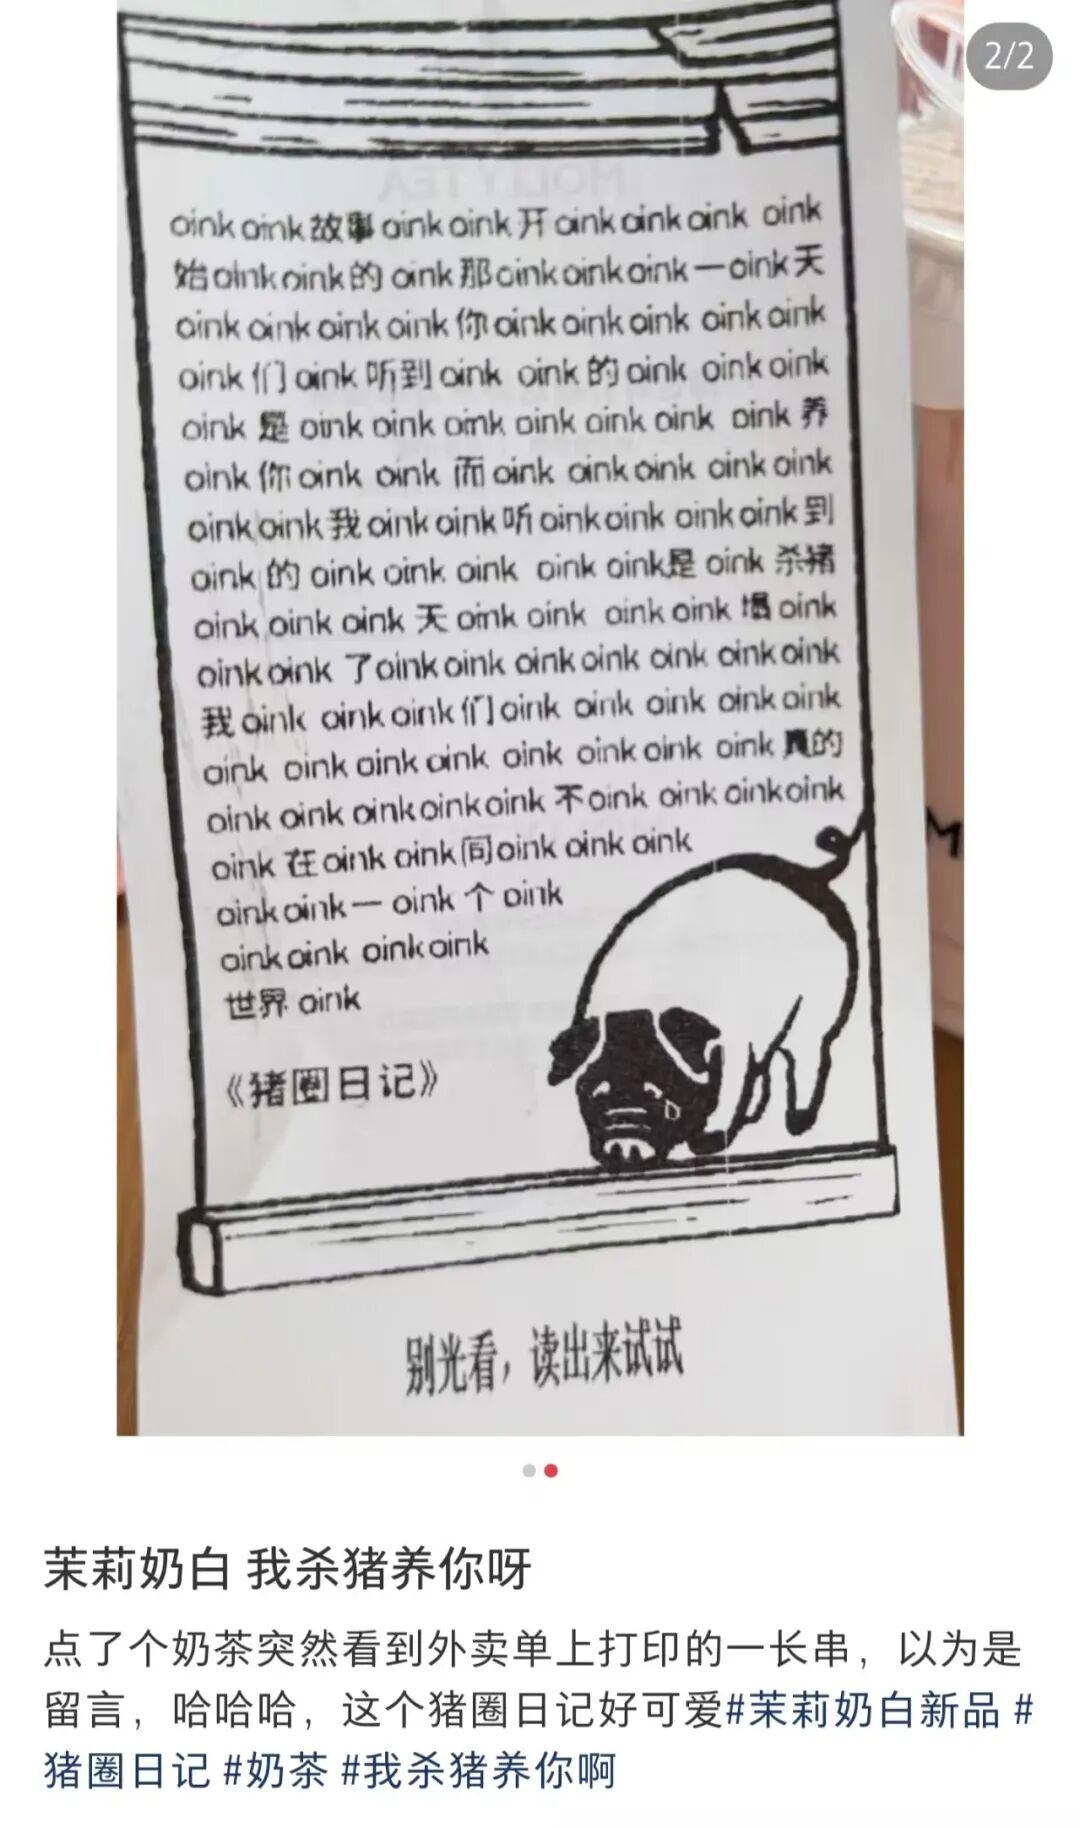 2/2
MOLLY TEA
oink oink 故事 oink oink 开 oink oink oink oink
始 oink oink 的 oink 那 oink oink oink 一 oink 天
oink oink oink oink 你 oink oink oink oink oink
oink 们 oink 听到 oink oink 的 oink oink oink
oink 是 oink oink oink oink oink oink oink 养
oink 你 oink oink 而 oink oink oink oink oink
oink oink 我 oink oink 听 oink oink oink oink 到
oink 的 oink oink oink oink oink 是 oink 杀猪
oink oink oink 天 oink oink oink oink 塌 oink
oink oink 了 oink oink oink oink oink oink oink
我 oink oink oink 们 oink oink oink oink oink
oink oink oink oink oink oink oink oink 真的
oink oink oink oink oink 不 oink oink oink oink
oink 在 oink oink 同 oink oink oink
oink oink 一 oink 个 oink
oink oink oink oink
世界 oink
《猪圈日记》
别光看，读出来试试
茉莉奶白 我杀猪养你呀
点了个奶茶突然看到外卖单上打印的一长串，以为是
留言，哈哈哈，这个猪圈日记好可爱#茉莉奶白新品 #
猪圈日记 #奶茶 #我杀猪养你啊